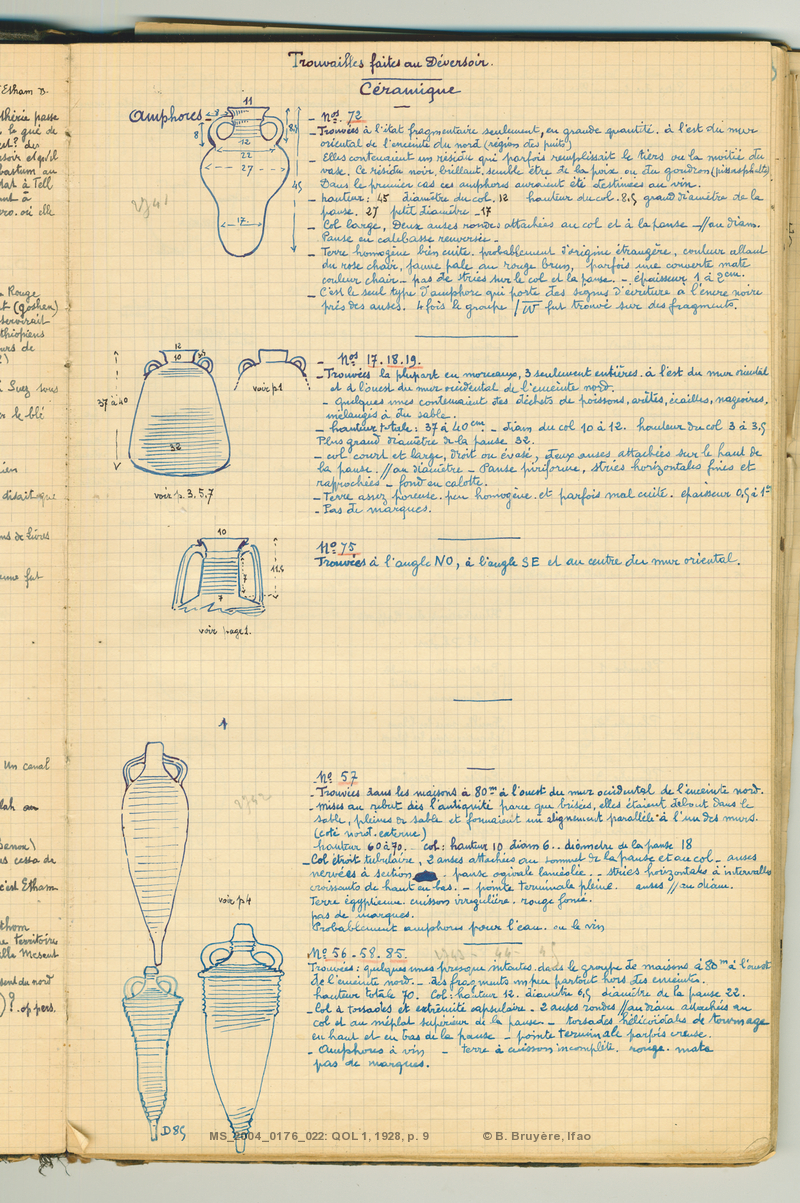 Trouvailles faites au Déversoir.
Céramique
Amphores
11
8
12
8,5
22
27
45
17.
- Nos 72
- Trouvées à l'état fragmentaire seulement, en grande quantité. à l'est du mur
oriental de l'enceinte du nord (région des puits)
- Elles contenaient un résidu qui parfois remplissait le tiers ou la moitié du
vase. Ce résidu noir, brillant. semble être de la poix ou du goudron (pissasphalte)
Dans le premier cas ces amphores auraient été destinées au vin.
- hauteur: 45 diamètre du col. 12 hauteur du col. 8,5 grand diamètre de la
panse. 27 petit diamètre - 17
- Col large, Deux anses rondes attachées au col et à la panse - // au diam.
Panse en calebasse renversée -
- Terre homogène bien cuite. probablement d'origine étrangère, couleur allant
du rose chair, jaune pale au rouge brun, parfois une couverte mate
couleur chair - pas de stries sur le col et la panse. - épaisseur 1 à 2cm.
- C'est le seul type d'amphore qui porte des signes d'écriture à l'encre noire
près des anses. 4 fois le groupe fut trouvé sur des fragments.
12
10
37 à 40
32
voir p.1
voir p. 3. 5. 7
- Nos 17. 18. 19.
- Trouvées la plupart en morceaux, 3 seulement entières. à l'est du mur oriental
et à l'ouest du mur occidental de l'enceinte nord.
- quelques unes contenaient des déchets de poissons, arêtes, écailles, nageoires.
mélangés à du sable.
- hauteur totale: 37 à 40cm - diam du col 10 à 12. hauteur du col 3 à 3,5
Plus grand diamètre de la panse 32.
- col court et large, droit ou évasé, deux anses attachées sur le haut de
la panse. // au diamètre - Panse piriforme, stries horizontales fines et
rapprochées - fond en calotte.
- Terre assez poreuse. peu homogène. et parfois mal cuite. épaisseur 0,5 à 1cm
- Pas de marques.
10
11,5
7
7
voir page 1.
No 75
Trouvées à l'angle NO, à l'angle SE et au centre du mur oriental.
voir p.4
D 85
No 57
- Trouvées dans les maisons à 80m à l'ouest du mur occidental de l'enceinte nord.
- mises au rebut dès l'antiquité parce que brisées, elles étaient debout dans le
sable, pleines de sable et formaient un alignement parallèle à l'un des murs.
(coté nord. externe)
hauteur 60 à 70. col: hauteur 10 diam 6.. diamètre de la panse 18
- Col étroit tubulaire, 2 anses attachées au sommet de la panse et au col - anses
nervées à section. panse ogivale lancéolée. - stries horizontales à intervalles
croissants de haut en bas. - pointe terminale pleine. anses // au diam.
Terre égyptienne. cuisson irrégulière. rouge foncé.
pas de marques.
Probablement amphores pour l'eau. ou le vin
No 56 - 58. 85.
Trouvées: quelques unes presque intactes. dans le groupe de maisons à 80m à l'ouest
de l'enceinte nord. - des fragments un peu partout hors des enceintes.
hauteur totale 70. Col: hauteur 12. diamètre 6,5 diamètre de la panse 22.
- Col à torsades et extrémité capsulaire. - 2 anses rondes // au diam attachées au
col et au méplat supérieur de la panse. - torsades hélicoïdales de tournage
en haut et en bas de la panse - pointe terminale parfois creuse.
- Amphores à vin - terre à cuisson incomplète. rouge. mate
pas de marques.
MS_2004_0176_022: QOL 1, 1928, p. 9 © B. Bruyère, Ifao